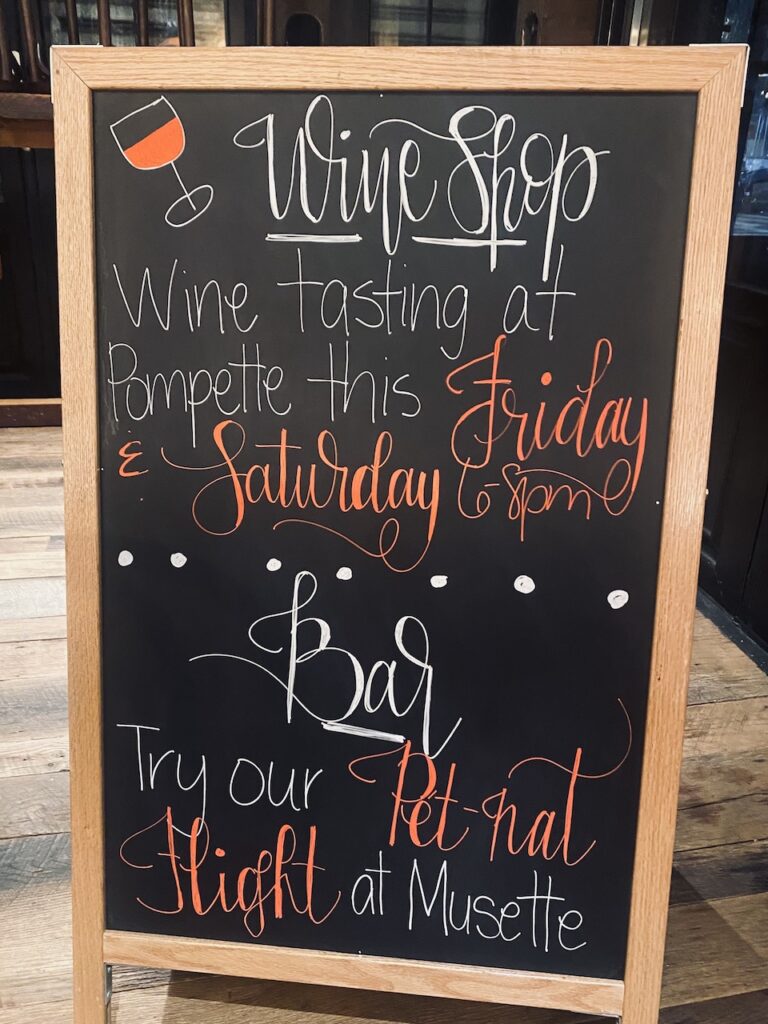 Wine Shop
Wine tasting at
Pompette this Friday
& Saturday 6-8pm
Bar
Try our Pét-nat
Flight at Musette